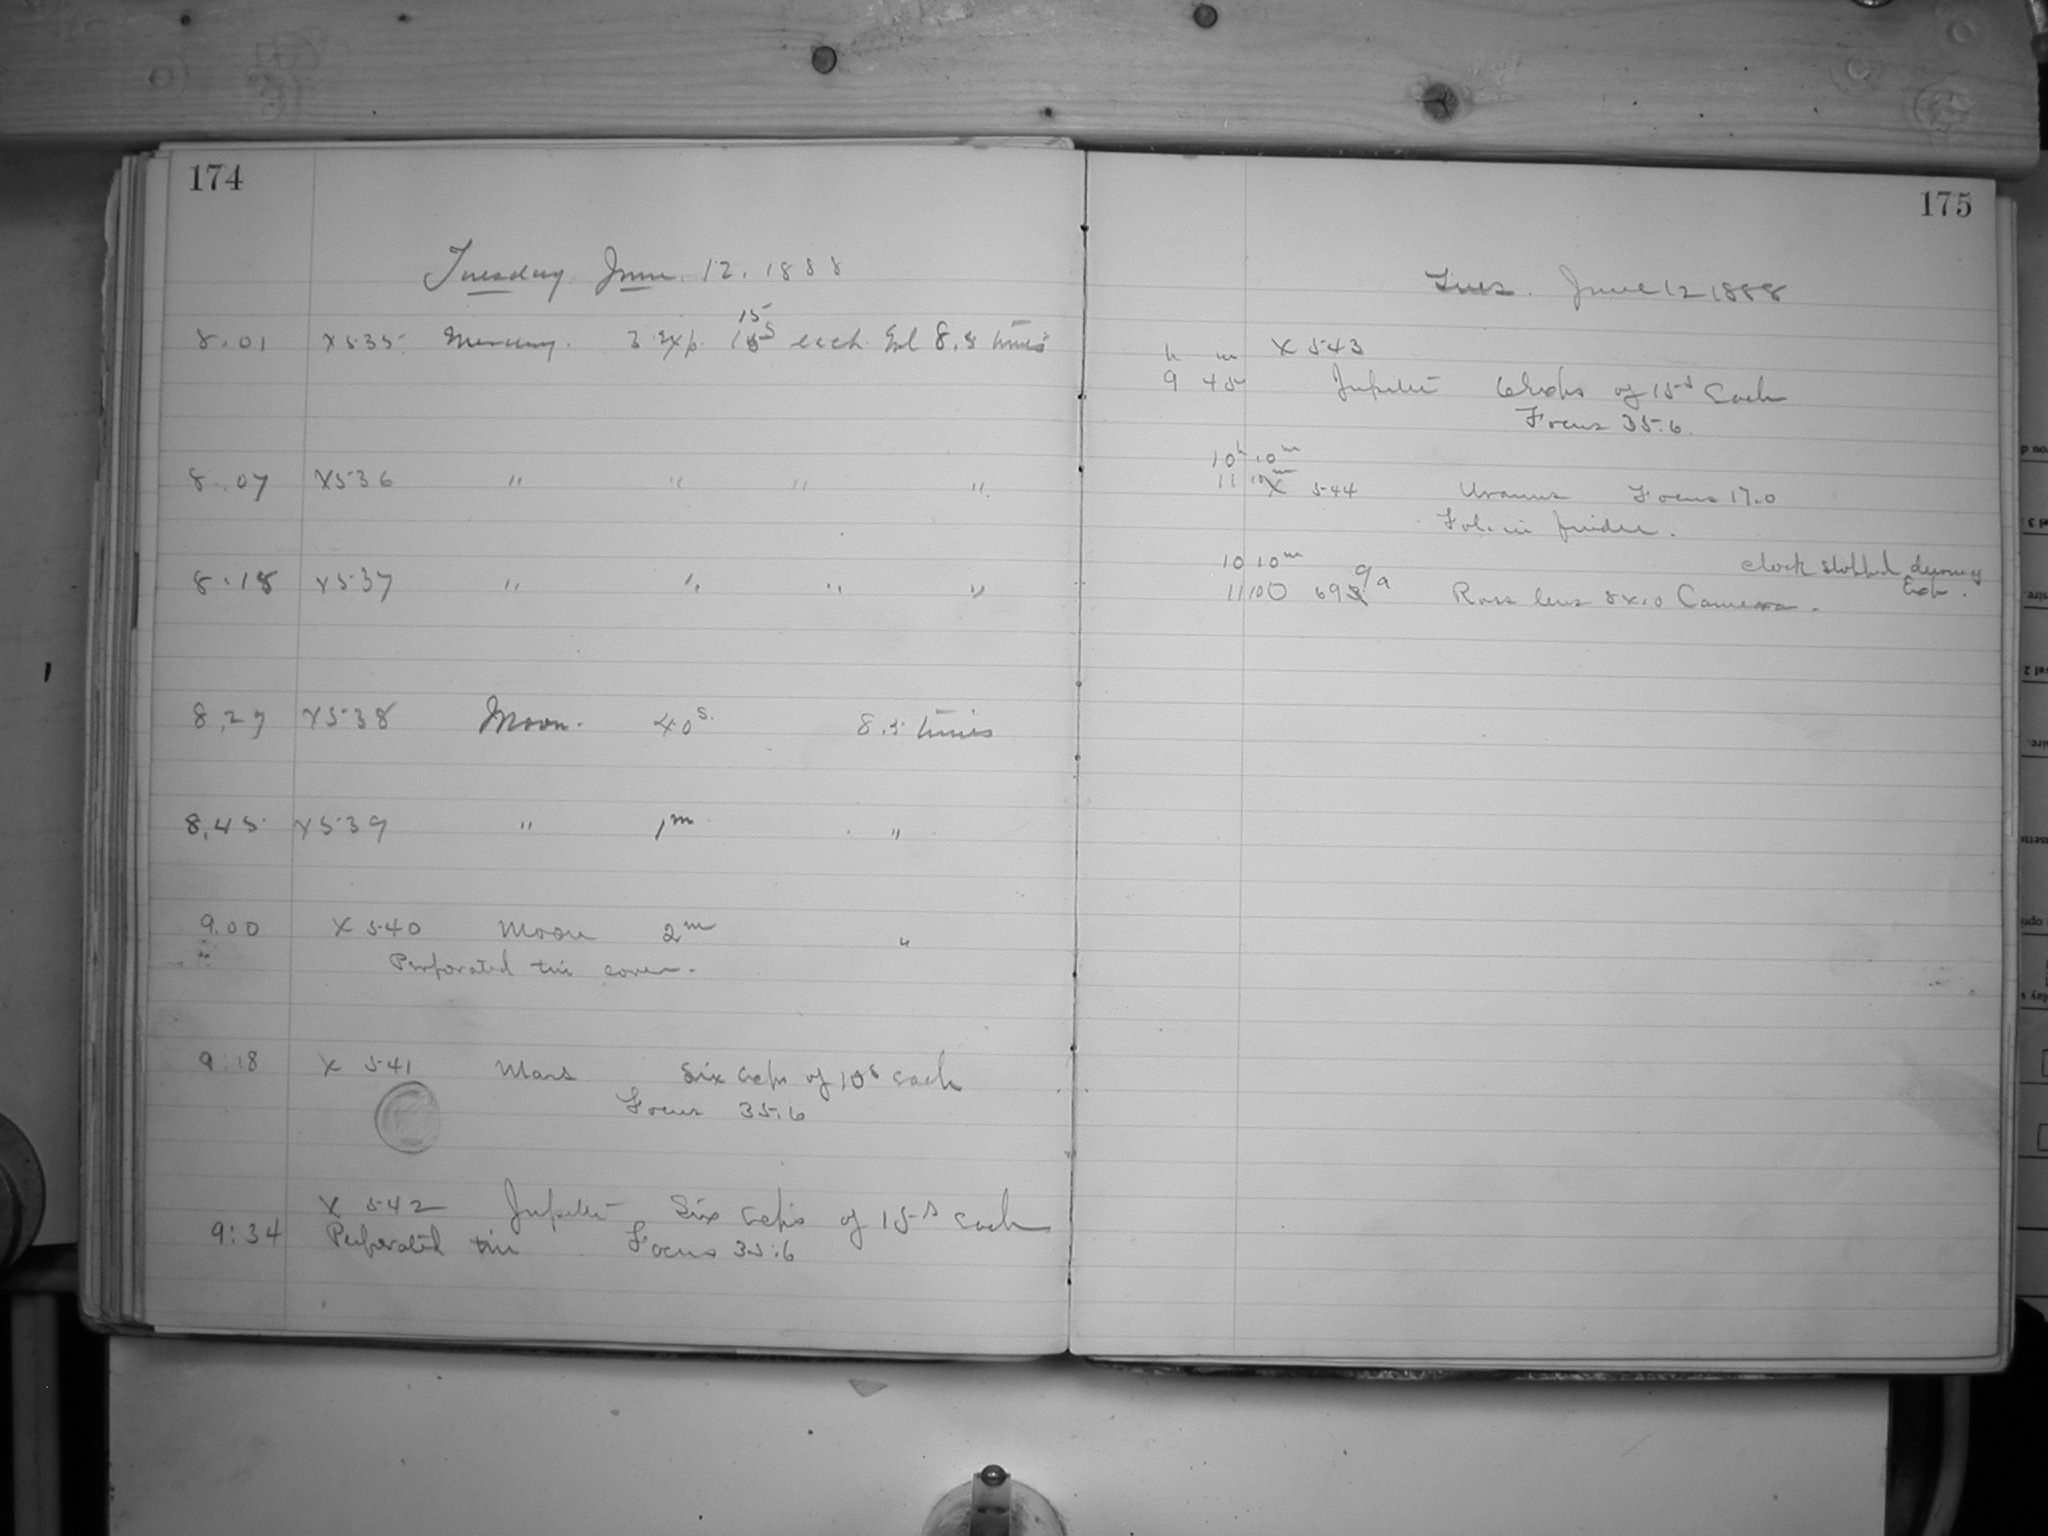 174
Tuesday June 12, 1888
15
8.01 X535 Mercury. 3 Exp. 15s each Enl 8.5 times
8.07 X536 " " " "
8.18 X537 " " " "
8.27 X538 Moon. 40s. 8.5 times
8.45 X539 " 1m "
9.00 X 540 Moon 2m "
Perforated tin cover.
9:18 X 541 Mars Six exps of 10s each
Focus 35.6
X 542 Jupiter Six exps of 15s each
9:34 Perforated tin Focus 35.6
175
Tues. June 12 1888
X 543
h m
9 45 Jupiter 6 Exps of 15s Each
Focus 35.6.
10h 10m
11 10m X 544 Uranus Focus 17.0
Fol. in finder.
10 10m 9 clock stopped during
11 10 O 698 a Ross lens 8x10 Camera. Exp.